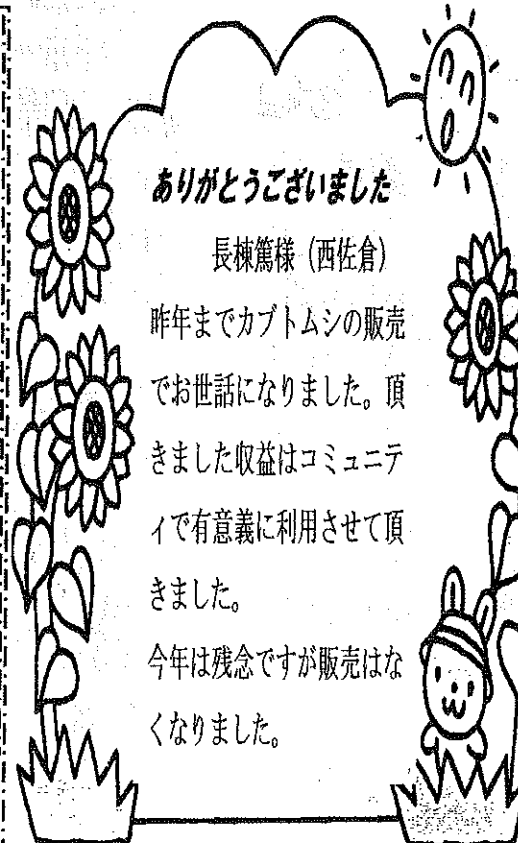 ありがとうございました
長棟篤様（西佐倉）
昨年までカブトムシの販売
でお世話になりました。頂
きました収益はコミュニテ
ィで有意義に利用させて頂
きました。
今年は残念ですが販売はな
くなりました。